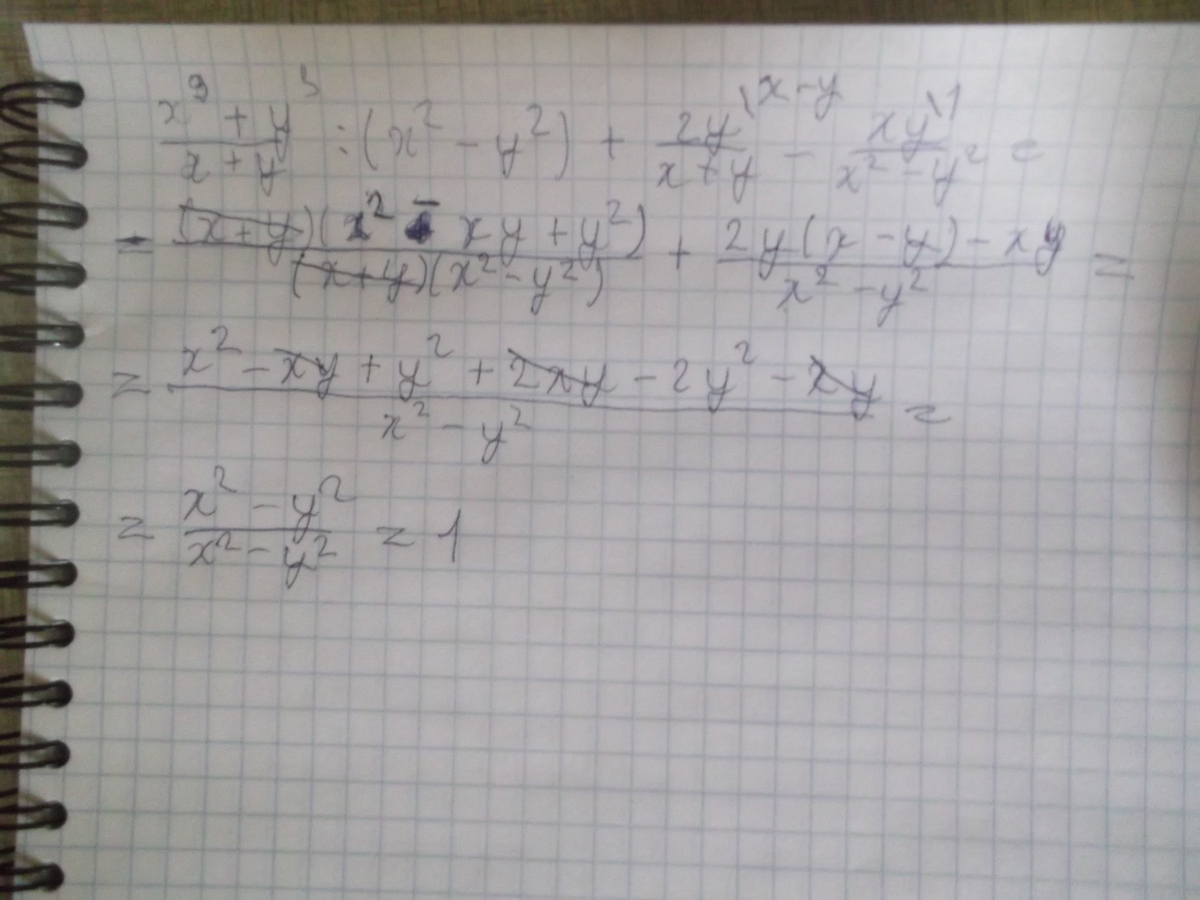 \frac{x^3 + y^3}{x + y} : (x^2 - y^2) + \frac{2y^{\backslash x - y}}{x + y} - \frac{xy^{\backslash 1}}{x^2 - y^2} =
= \frac{(x + y)(x^2 - xy + y^2)}{(x + y)(x^2 - y^2)} + \frac{2y(x - y) - xy}{x^2 - y^2} =
= \frac{x^2 - xy + y^2 + 2xy - 2y^2 - xy}{x^2 - y^2} =
= \frac{x^2 - y^2}{x^2 - y^2} = 1